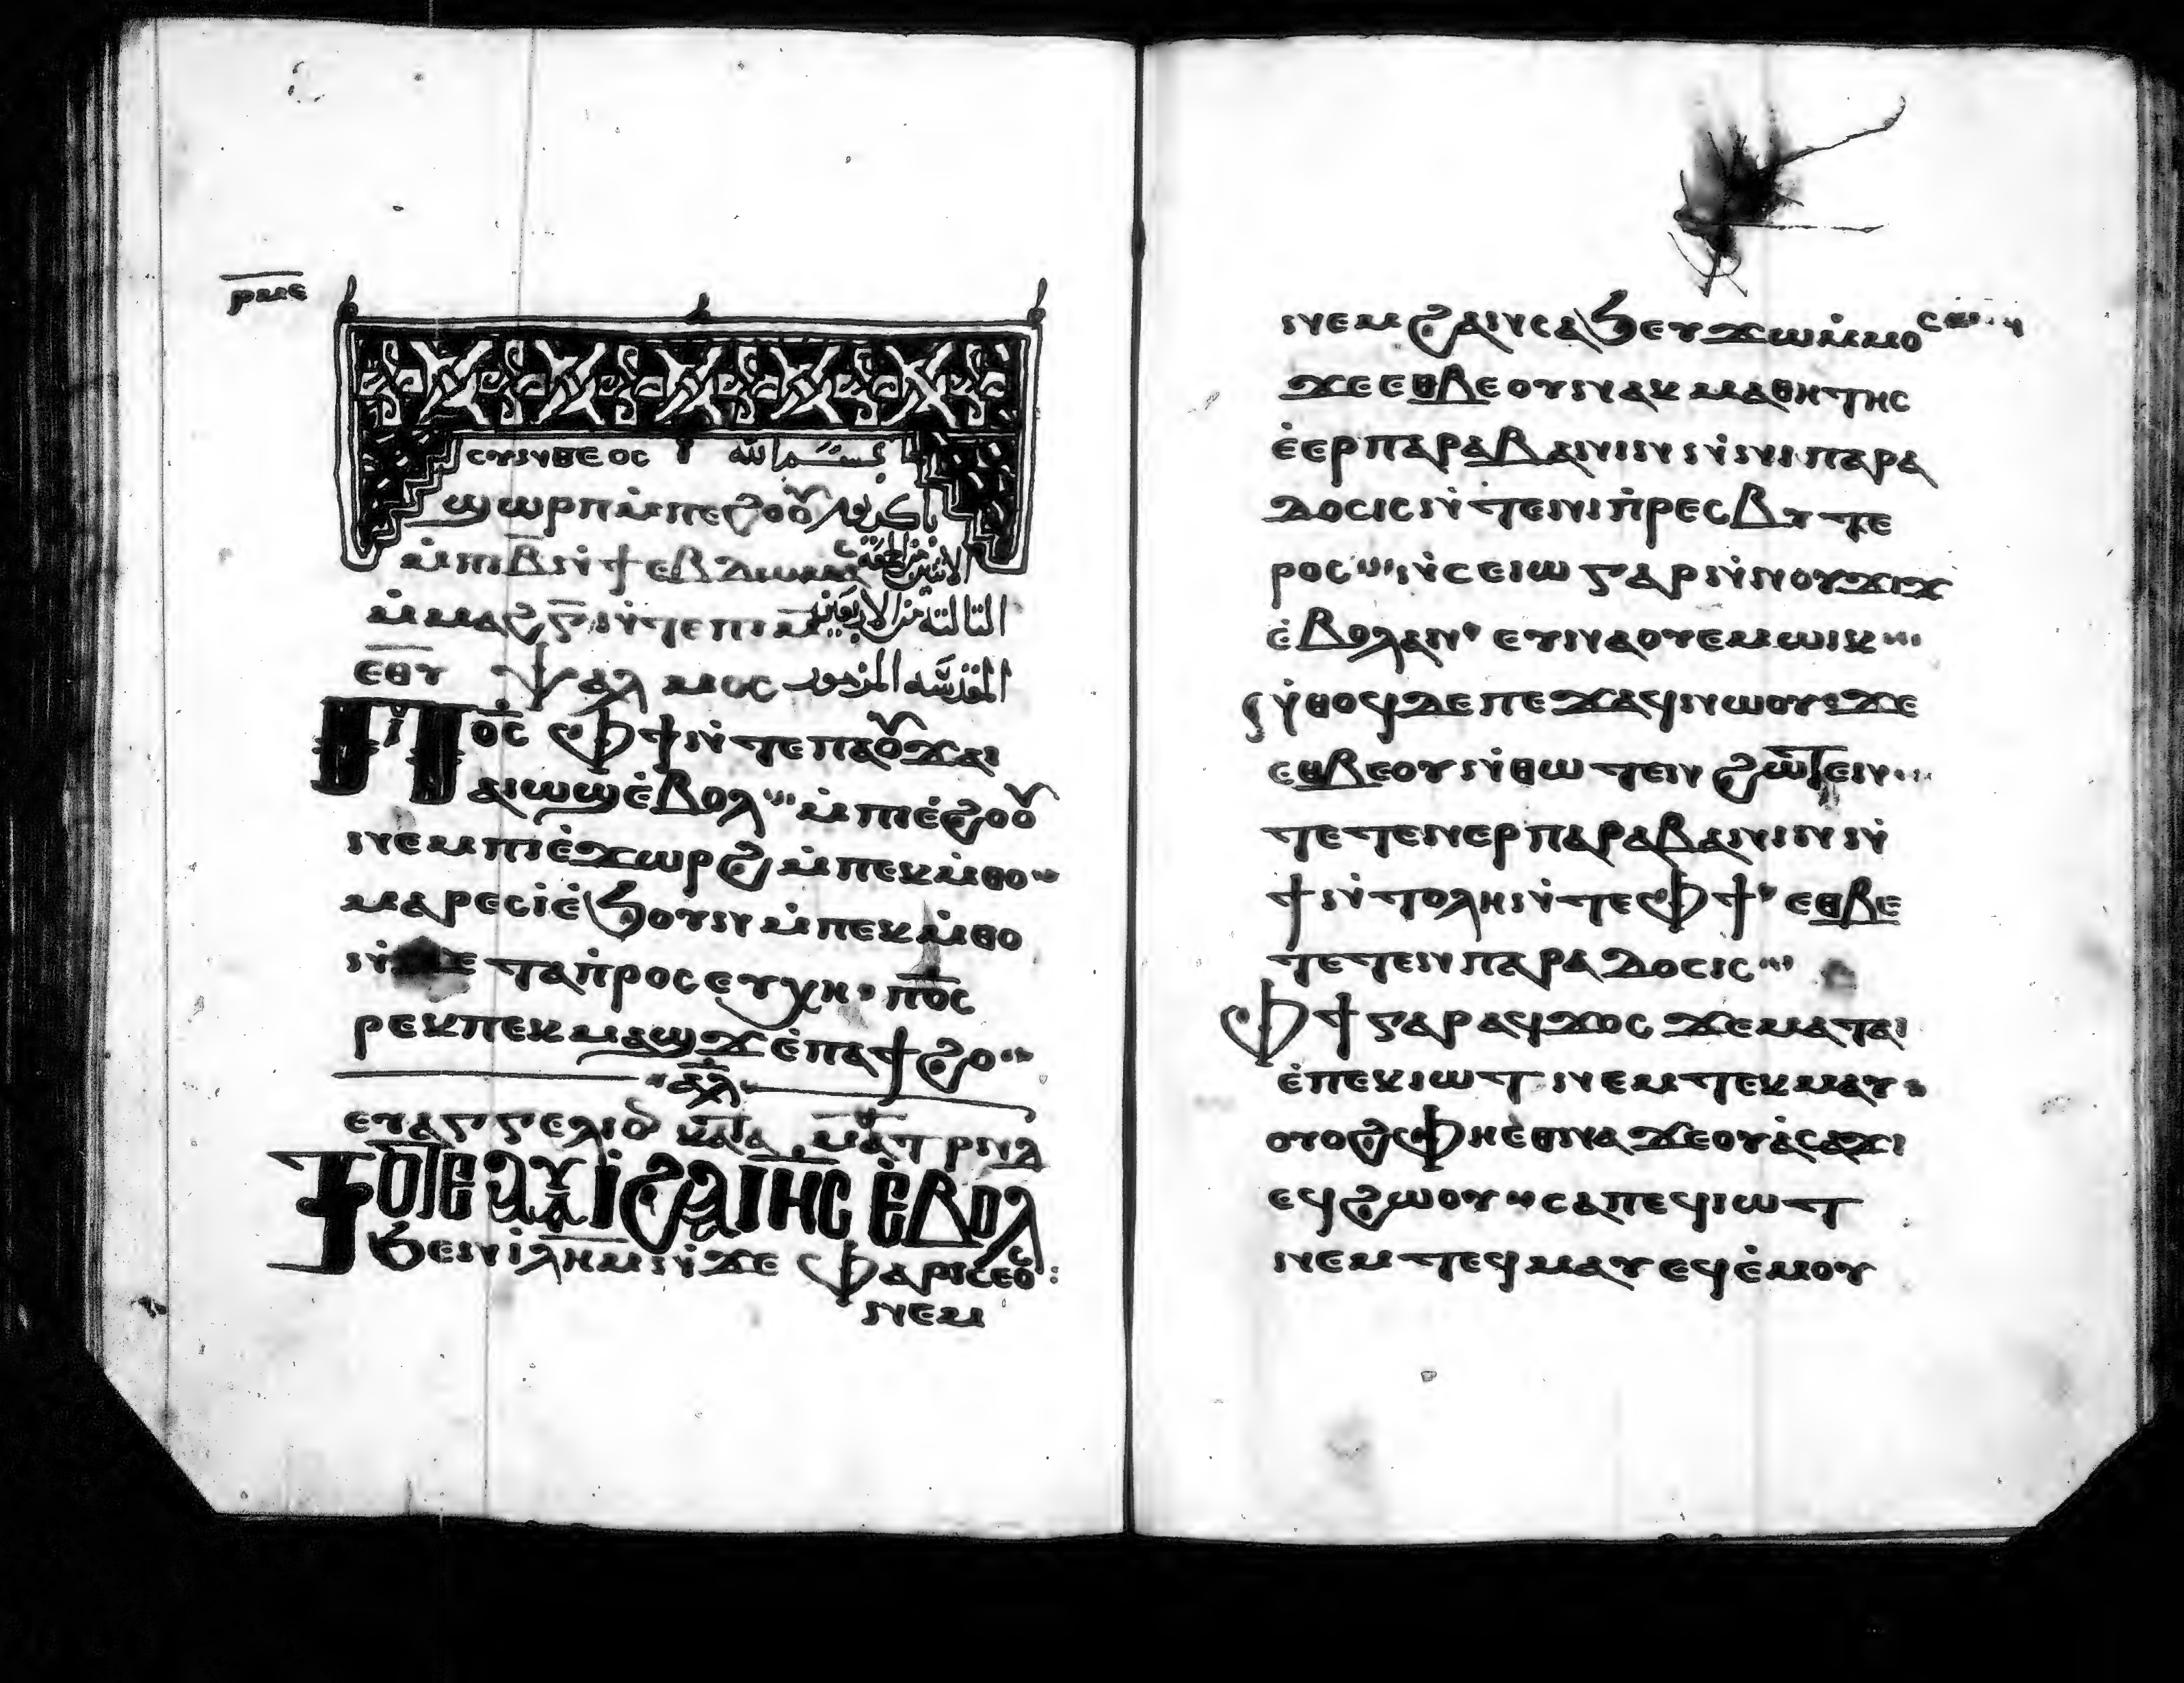 ⲣⲙⲉ
ⲥⲩⲛⲑⲉⲟⲥ بسم الله
ϣⲱⲣⲡ ⲙ̀ⲡⲉϩⲟⲟⲩ باكر يوم
ⲙ̀ⲡⲓⲃ̅ ⲛ̀ϯⲉⲃⲇⲱⲙⲁⲥ الاثنين من الجمعة
ⲙ̀ⲙⲁϩ ⲅ̅ ⲛ̀ⲧⲉ ⲡⲓⲙ̅ الثالثة من الاربعين
ⲉ̅ⲑ̅ⲩ ⲯⲁⲗⲙⲟⲥ المقدسة المزمور
ⲡ̅ⲟ̅ⲥ̅ ⲫϯ ⲛ̀ⲧⲉ ⲡⲁⲟⲩϫⲁⲓ
ⲁⲓⲱϣ ⲉ̀ⲃⲟⲗ ⲙ̀ⲡⲓⲉ̀ϩⲟⲟⲩ
ⲛⲉⲙ ⲡⲓⲉ̀ϫⲱⲣϩ ⲙ̀ⲡⲉⲕⲙ̀ⲑⲟ
ⲙⲁⲣⲉⲥⲓ̀ ⲉ̀ϧⲟⲩⲛ ⲙ̀ⲡⲉⲕⲙ̀ⲑⲟ
ⲛ̀ϫⲉ ⲧⲁⲡ̀ⲣⲟⲥⲉⲩⲭⲏ ⲡ̅ⲟ̅ⲥ̅
ⲣⲉⲕ ⲡⲉⲕⲙⲁϣϫ ⲉ̀ⲡⲁϯϩⲟ
ⲁ̅ⲗ̅
ⲉⲩⲁⲅⲅⲉⲗⲓⲟⲩ ⲕⲁⲧⲁ ⲙⲁⲧ ⲣⲛⲁ
ⲧⲟⲧⲉ ⲁⲩⲓ̀ ϩⲁ ⲓⲏⲥ ⲉ̀ⲃⲟⲗ
ϧⲉⲛ ⲓⲗⲏⲙ ⲛ̀ϫⲉ ⲫⲁⲣⲓⲥⲉⲟⲥ
ⲛⲉⲙ
ⲛⲉⲙ ϩⲁⲛⲥⲁϧ ⲉⲩϫⲱ ⲙ̀ⲙⲟⲥ
ϫⲉ ⲉⲑⲃⲉ ⲟⲩ ⲛⲁⲕⲙⲁⲑⲏⲧⲏⲥ
ⲉ̀ⲉⲣⲡⲁⲣⲁⲃⲁⲛⲓⲛ ⲛ̀ⲛⲓⲡⲁⲣⲁ
ⲇⲟⲥⲓⲥ ⲛ̀ⲧⲉ ⲛⲓⲡ̀ⲣⲉⲥⲃⲩⲧⲉ
ⲣⲟⲥ ⲛ̀ⲥⲉⲓⲱ ⲅⲁⲣ ⲛ̀ⲛⲟⲩϫⲓϫ
ⲉ̀ⲃⲟⲗ ⲁⲛ ⲉⲩⲛⲁⲟⲩⲉⲙ ⲱⲓⲕ
ⲛ̀ⲑⲟϥ ⲇⲉ ⲡⲉϫⲁϥ ⲛⲱⲟⲩ ϫⲉ
ⲉⲑⲃⲉ ⲟⲩ ⲛ̀ⲑⲱⲧⲉⲛ ϩⲱⲧⲉⲛ
ⲧⲉⲧⲉⲛⲉⲣⲡⲁⲣⲁⲃⲁⲛⲓⲛ ⲛ̀
ϯⲛ̀ⲧⲟⲗⲏ ⲛ̀ⲧⲉ ⲫϯ ⲉⲑⲃⲉ
ⲧⲉⲧⲉⲛⲡⲁⲣⲁⲇⲟⲥⲓⲥ
ⲫϯ ⲅⲁⲣ ⲁϥϫⲟⲥ ϫⲉ ⲙⲁⲧⲁⲓ
ⲉ̀ⲡⲉⲕⲓⲱⲧ ⲛⲉⲙ ⲧⲉⲕⲙⲁⲩ
ⲟⲩⲟϩ ⲫⲏ ⲉ̀ⲑⲛⲁϫⲉ ⲟⲩⲥⲁϫⲓ
ⲉϥϩⲱⲟⲩ ⲥⲁ ⲡⲉϥⲓⲱⲧ
ⲛⲉⲙ ⲧⲉϥⲙⲁⲩ ⲉϥⲉ̀ⲙⲟⲩ